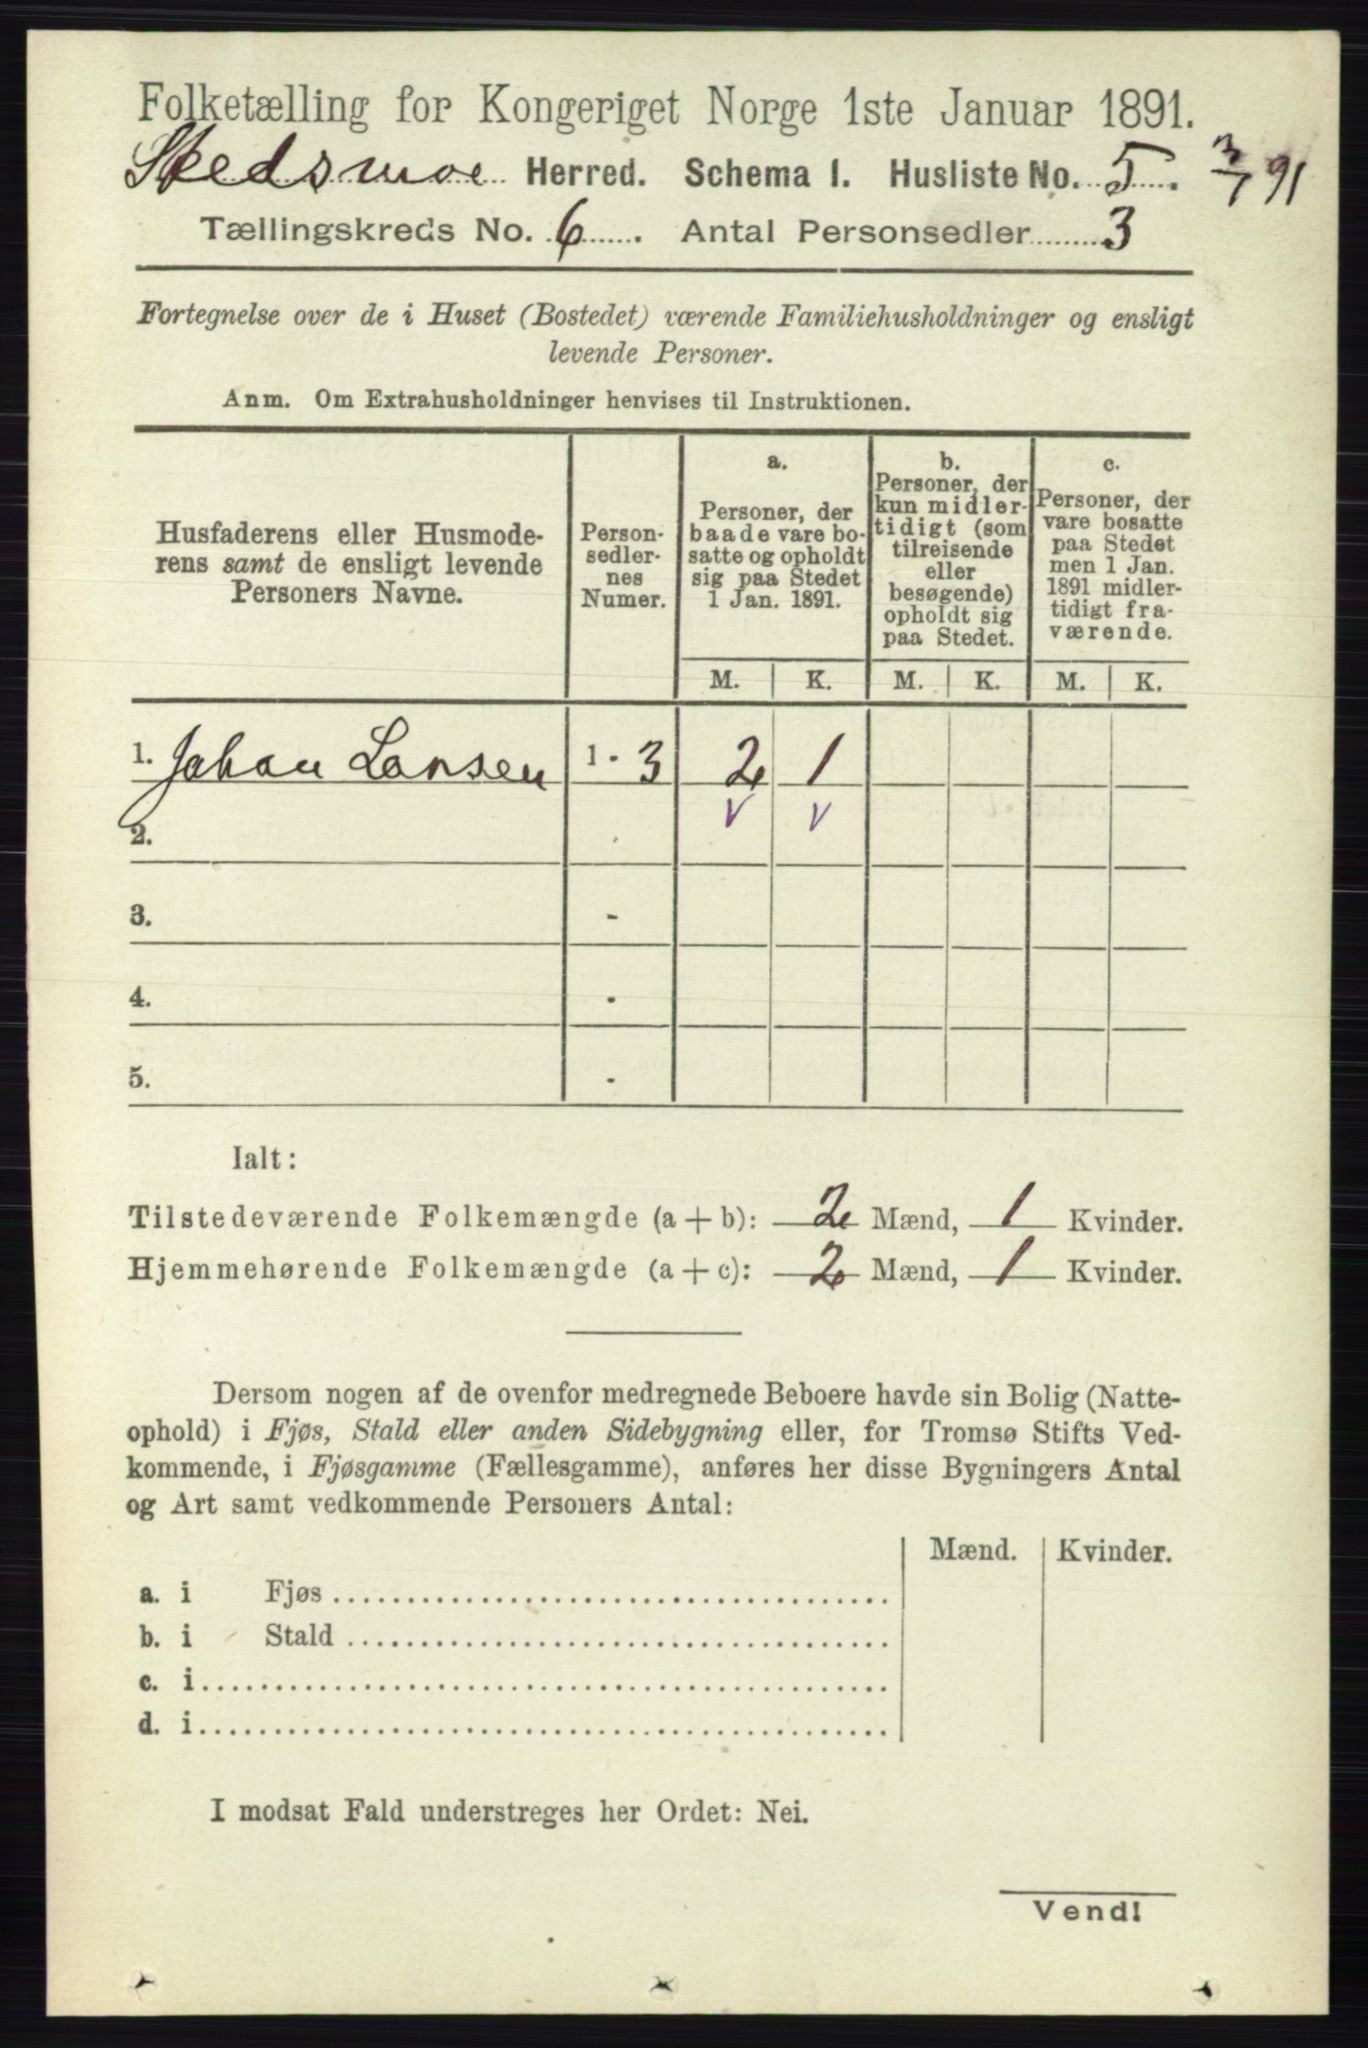 Folketælling for Kongeriget Norge 1ste Januar 1891.
Skedsmoe Herred. Schema I. Husliste No. 5. 3/1 91
Tællingskreds No. 6. Antal Personsedler 3
Fortegnelse over de i Huset (Bostedet) værende Familiehusholdninger og ensligt
levende Personer.
Anm. Om Extrahusholdninger henvises til Instruktionen.
Husfaderens eller Husmode-
rens samt de ensligt levende
Personers Navne.
Person-
sedler-
nes
Numer.
a.
Personer, der
baade vare bo-
satte og opholdt
sig paa Stedet
1 Jan. 1891.
b.
Personer, der
kun midler-
tidigt (som
tilreisende
eller
besøgende)
opholdt sig
paa Stedet.
c.
Personer, der
vare bosatte
paa Stedet
men 1 Jan.
1891 midler-
tidigt fra-
værende.
M. K. M. K. M. K.
1. Johan Larsen 1 - 3 2 1
v v
2.
3. -
4. -
5. -
Ialt:
Tilstedeværende Folkemængde (a + b): 2 Mænd, 1 Kvinder.
Hjemmehørende Folkemængde (a + c): 2 Mænd, 1 Kvinder.
Dersom nogen af de ovenfor medregnede Beboere havde sin Bolig (Natte-
ophold) i Fjøs, Stald eller anden Sidebygning eller, for Tromsø Stifts Ved-
kommende, i Fjøsgamme (Fællesgamme), anføres her disse Bygningers Antal
og Art samt vedkommende Personers Antal:
Mænd. Kvinder.
a. i Fjøs
b. i Stald
c. i
d. i
I modsat Fald understreges her Ordet: Nei.
Vend!